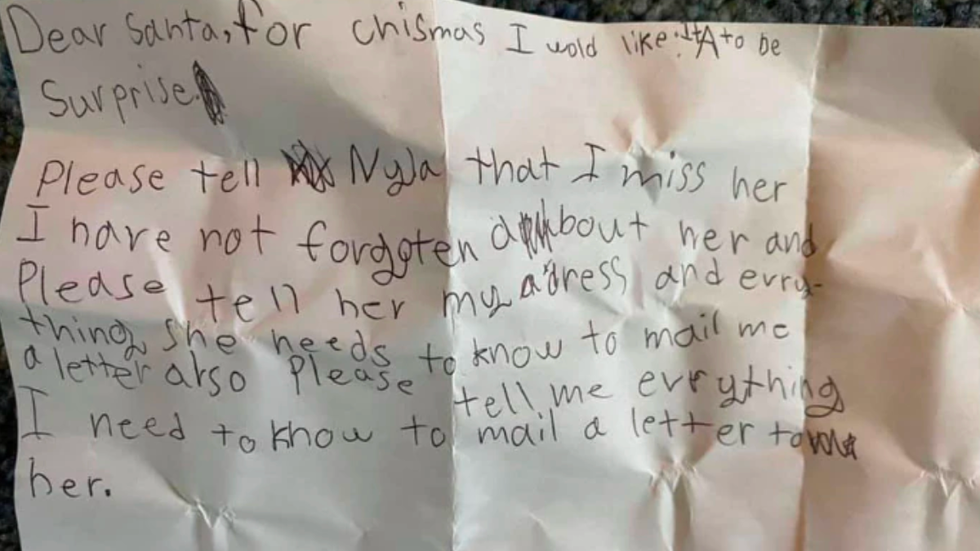 Dear Santa, for chismas I wold like ItA to be
Surprise.
Please tell Nyla that I miss her
I have not forggten about her and
Please tell her my adress and evry-
thing she needs to know to mail me
a letter also Please tell me evrything
I need to know to mail a letter to
her.